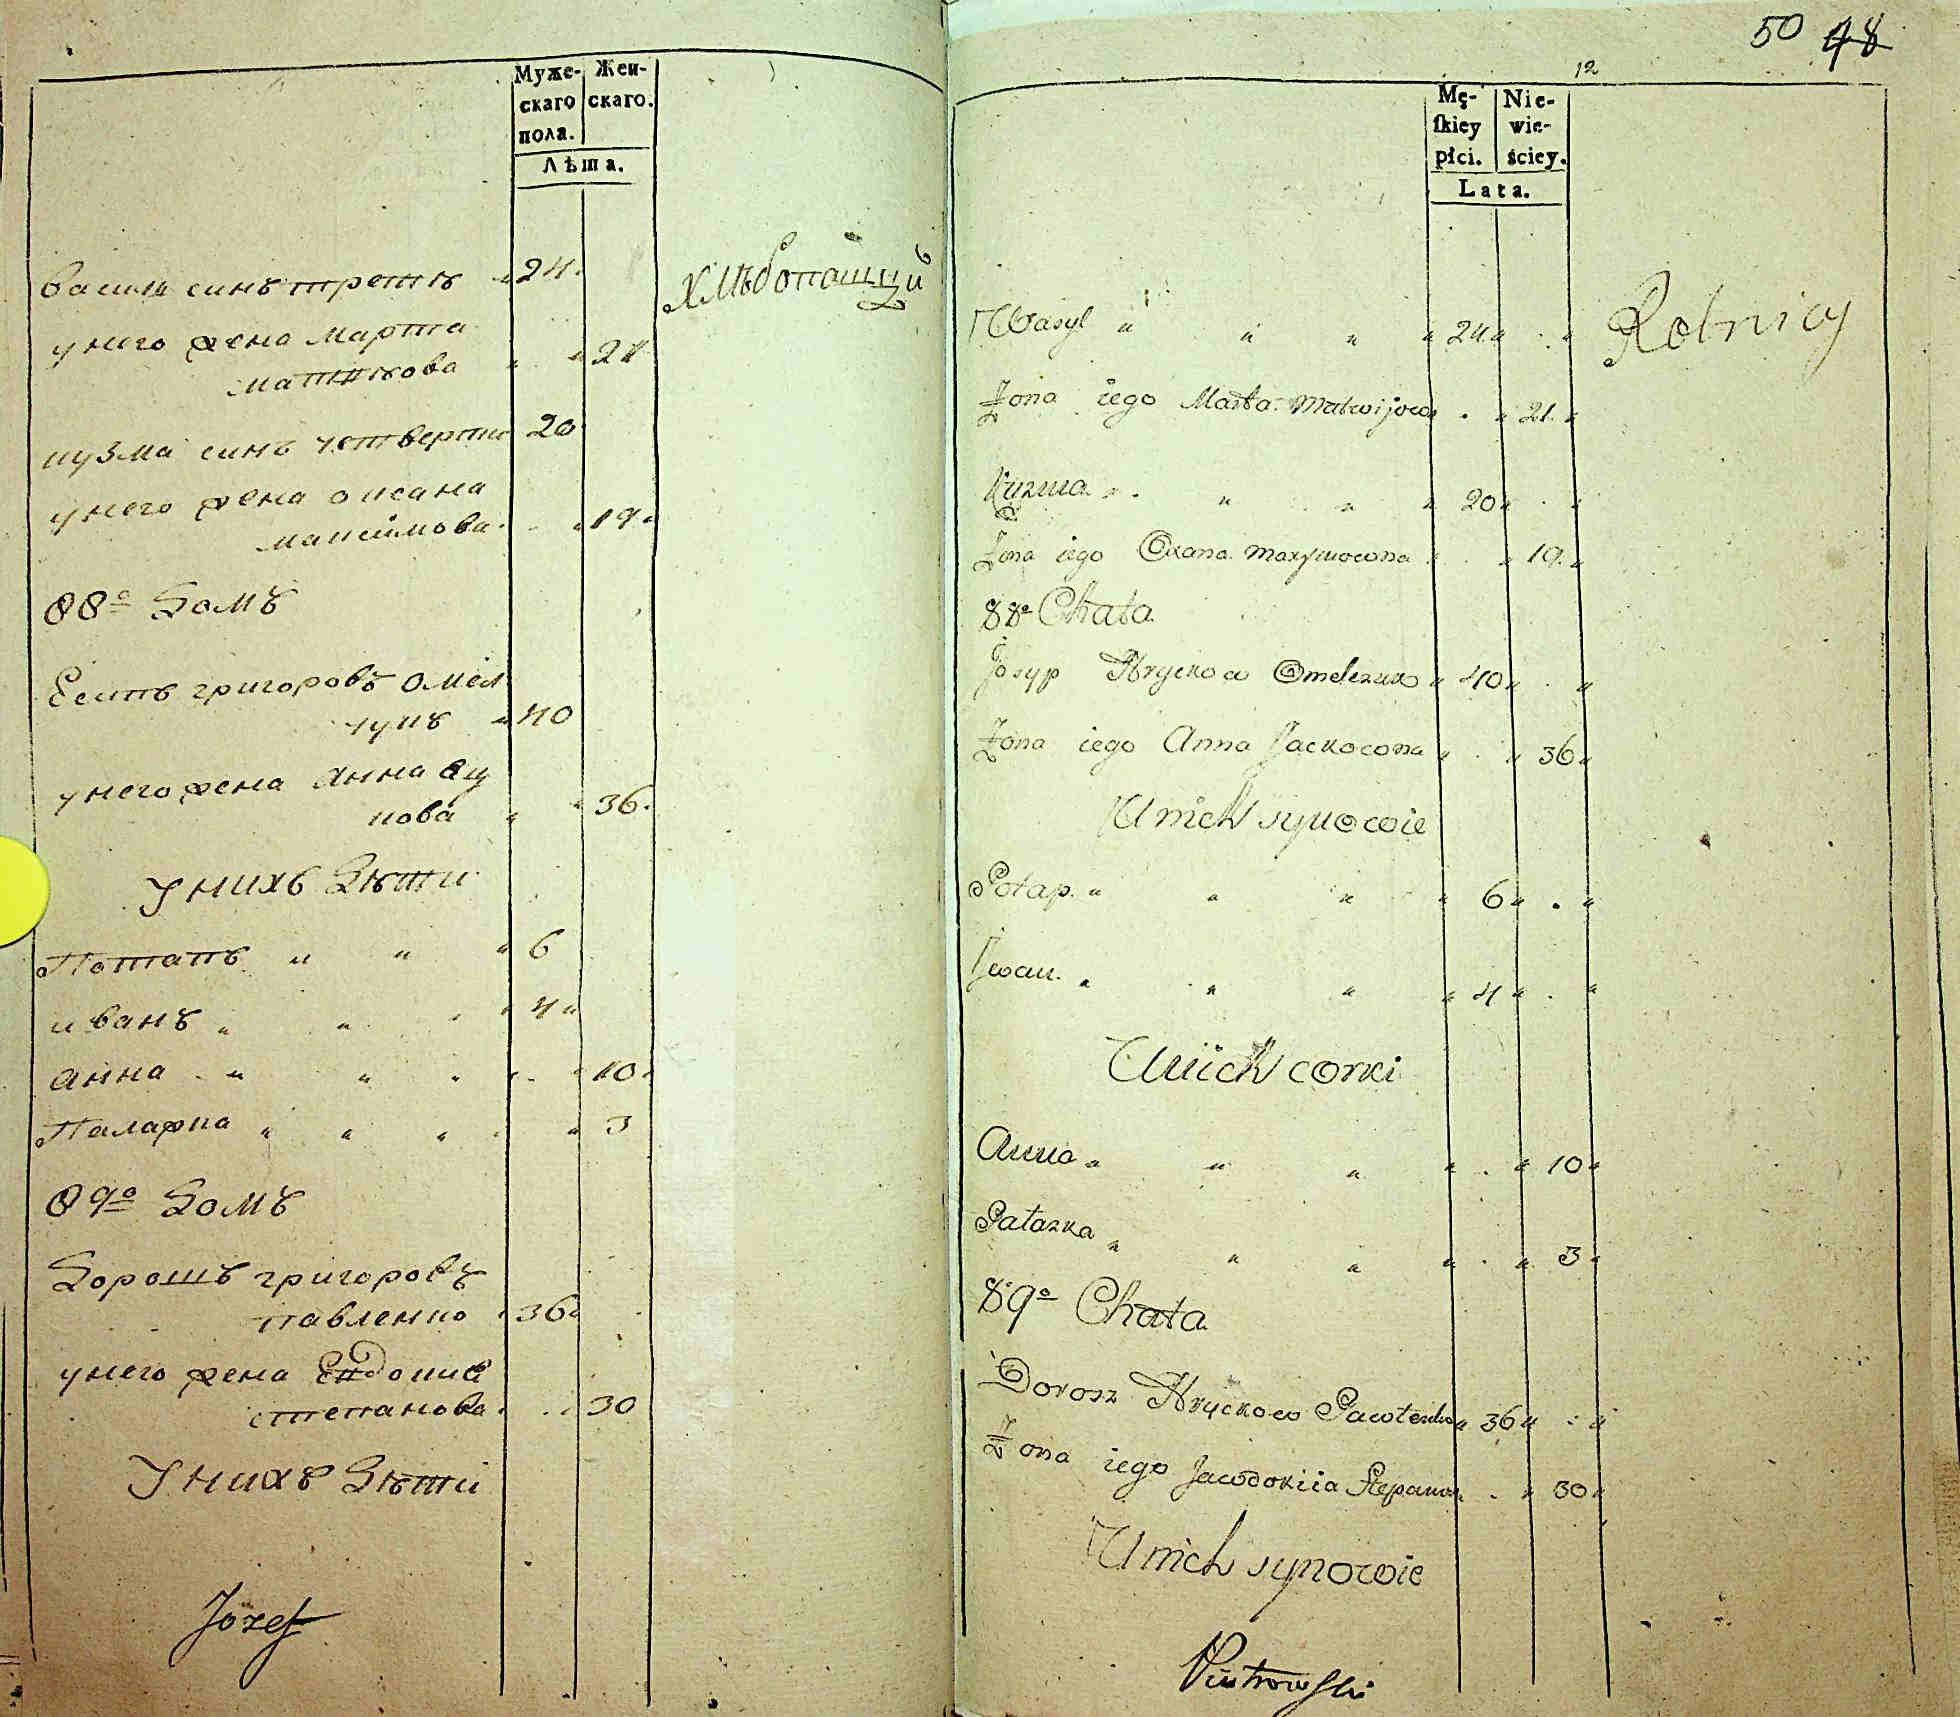 Муже-
скаго
пола.
Жен-
скаго.
Лѣта.
василь синъ третѣ 24
Хлѣбопашци
у него жена марта
матвѣѣова 21
кузма синъ четверти 20
у него жена оксана
максимова 19
88º Домъ
Есипъ григоровъ омел
чукъ 40
у него жена Анна яц
кова 36
У нихъ Дѣти
Потапъ 6
иванъ 4
анна 10
Палажка 3
89º Домъ
Дорошъ григоровъ
павленко 36
у него жена Евдокиа
степанова 30
У нихъ Дѣти
Jozef
50 48
12
Mę-
ſkiey
płci.
Nie-
wie-
ściey.
Lata.
Wasyl 24
Rolnicy
Zona iego Marta Matwijowa 21
Kuzma 20
Zona iego Oxana Maxymowona 19
88º Chata
Josyp Hryckow Omelczuk 40
Zona iego Anna Jackowona 36
U nich synowie
Potap 6
Iwan 4
U nich corki
Anna 10
Pałazka 3
89º Chata
Dorosz Hryckow Pawlenko 36
Zona iego Jawdokiia Stepanow 30
U nich synowie
Piotrowſki